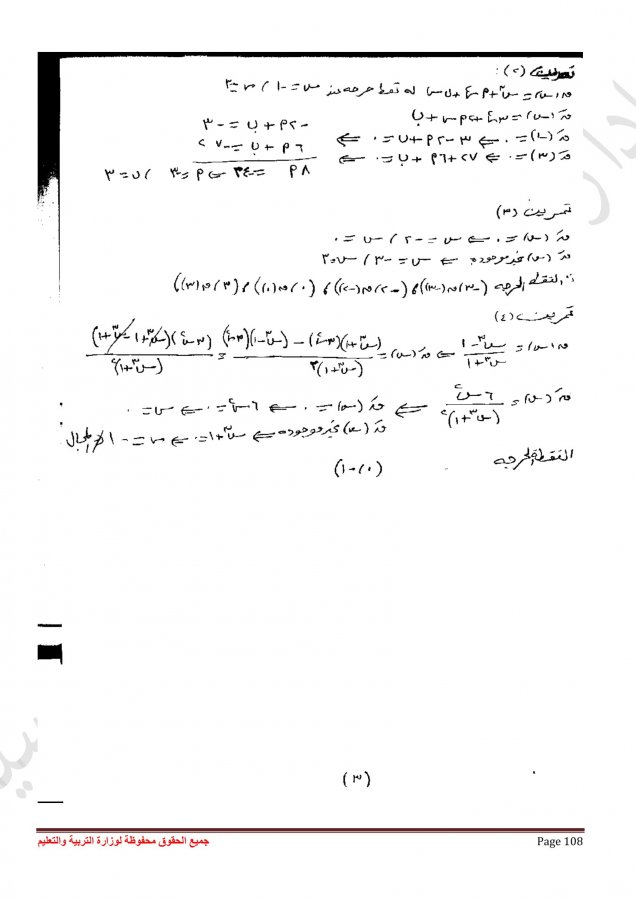 تمرين (٢) :
ق(س) = س٣ + م س٢ + ن س له نقط حرجه عند س = -١ ، س = ٣
قَ(س) = ٣س٢ + ٢م س + ن
قَ(-١) = ٠ ⇐ ٣ - ٢م + ن = ٠ ⇐ -٢م + ن = -٣
قَ(٣) = ٠ ⇐ ٢٧ + ٦م + ن = ٠ ⇐ ٦م + ن = -٢٧
٨م = -٢٤ ⇐ م = -٣ ، ن =
تمرين (٣)
قَ(س) = ٠ ⇐ س = -٢ ، س = ٠
قَ(س) غير موجوده ⇐ س = -٣ ، س = ٣
∴ النقط الحرجه (-٣، ق(-٣)) ، (-٢، ق(-٢)) ، (٠، ق(٠)) ، (٣، ق(٣))
تمرين (٤)
ق(س) = (س٣ - ١)/(س٣ + ١) ⇐ قَ(س) = ((س٣+١)(٣س٢) - (س٣-١)(٣س٢))/(س٣+١)٢ = (٣س٢)(س٣+١-س٣+١)/(س٣+١)٢
قَ(س) = ٦س٢/(س٣+١)٢ ⇐ قَ(س) = ٠ ⇐ ٦س٢ = ٠ ⇐ س = ٠
قَ(س) غير موجوده ⇐ س٣+١ = ٠ ⇐ س = -١ ∉ المجال
النقطة الحرجه (٠، -١)
(٣)
جميع الحقوق محفوظة لوزارة التربية والتعليم
Page 108